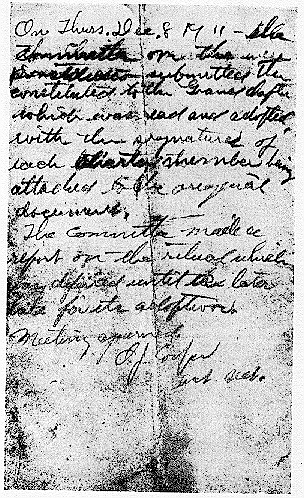 On Thurs. Dec. 8 1911 - the
Committee on the
Constitution submitted the
constitution to the
which was read and adopted
with the signatures of
each charter member being
attached to the original
document.
The Committee made a
report on the ritual which
was defered until
date for its adoption.
Meeting